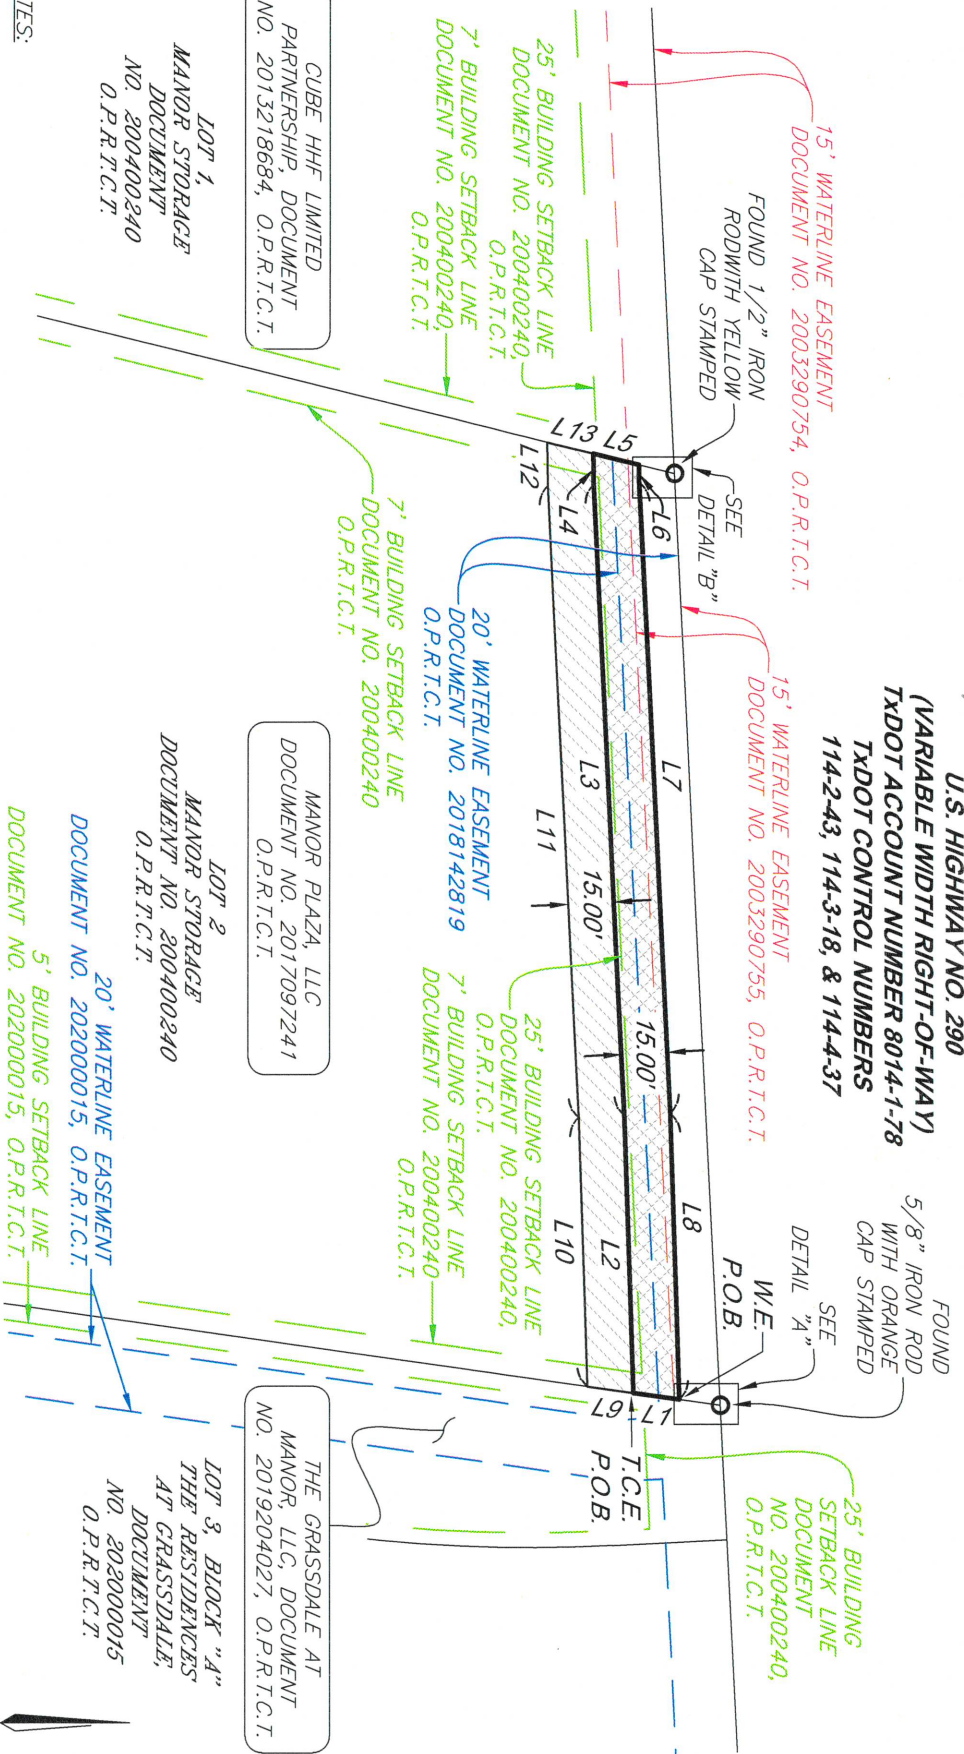 U.S. HIGHWAY NO. 290
(VARIABLE WIDTH RIGHT-OF-WAY)
TxDOT ACCOUNT NUMBER 8014-1-78
TxDOT CONTROL NUMBERS
114-2-43, 114-3-18, & 114-4-37
15' WATERLINE EASEMENT
DOCUMENT NO. 2003290754, O.P.R.T.C.T.
FOUND 1/2" IRON
RODWITH YELLOW
CAP STAMPED
SEE
DETAIL "B"
15' WATERLINE EASEMENT
DOCUMENT NO. 2003290755, O.P.R.T.C.T.
FOUND
5/8" IRON ROD
WITH ORANGE
CAP STAMPED
SEE
DETAIL "A"
W.E.
P.O.B.
25' BUILDING
SETBACK LINE
DOCUMENT
NO. 200400240,
O.P.R.T.C.T.
25' BUILDING SETBACK LINE
DOCUMENT NO. 200400240,
O.P.R.T.C.T.
7' BUILDING SETBACK LINE
DOCUMENT NO. 200400240,
O.P.R.T.C.T.
L13
L5
L6
L4
L12
L7
L3
L11
15.00'
15.00'
L8
L2
L10
L1
L9
T.C.E.
P.O.B.
20' WATERLINE EASEMENT
DOCUMENT NO. 2018142819
O.P.R.T.C.T.
25' BUILDING SETBACK LINE
DOCUMENT NO. 200400240,
O.P.R.T.C.T.
7' BUILDING SETBACK LINE
DOCUMENT NO. 200400240
O.P.R.T.C.T.
7' BUILDING SETBACK LINE
DOCUMENT NO. 200400240
O.P.R.T.C.T.
CUBE HHF LIMITED
PARTNERSHIP, DOCUMENT
NO. 2013218684, O.P.R.T.C.T.
MANOR PLAZA, LLC
DOCUMENT NO. 2017097241
O.P.R.T.C.T.
THE GRASSDALE AT
MANOR, LLC, DOCUMENT
NO. 2019204027, O.P.R.T.C.T.
LOT 1,
MANOR STORAGE
DOCUMENT
NO. 200400240
O.P.R.T.C.T.
LOT 2
MANOR STORAGE
DOCUMENT NO. 200400240
O.P.R.T.C.T.
LOT 3, BLOCK "A"
THE RESIDENCES
AT GRASSDALE,
DOCUMENT
NO. 202000015
O.P.R.T.C.T.
20' WATERLINE EASEMENT
DOCUMENT NO. 202000015, O.P.R.T.C.T.
5' BUILDING SETBACK LINE
DOCUMENT NO. 202000015, O.P.R.T.C.T.
TES: